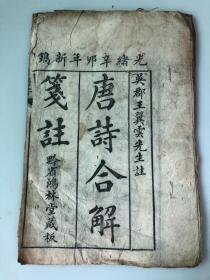 光緒辛卯年新鐫
吳郡王翼雲先生註
唐詩合解
箋註
黔省鴻林堂藏板